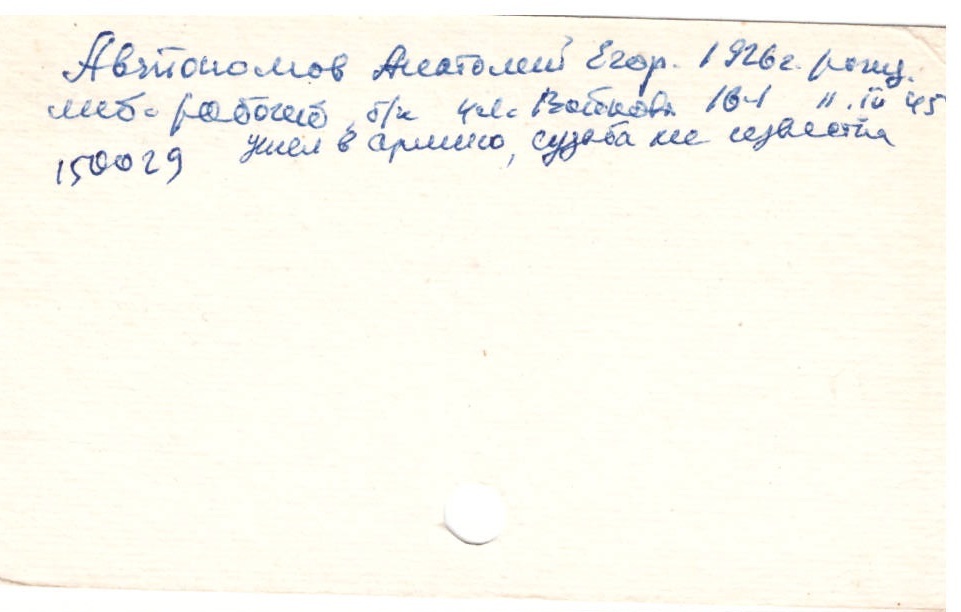 Автономов Анатолий Егор. 1926г. рожд.
рабочий б/п ул. Войкова 16-1 11.III 45
ушел в армию, судьба не известна
150029